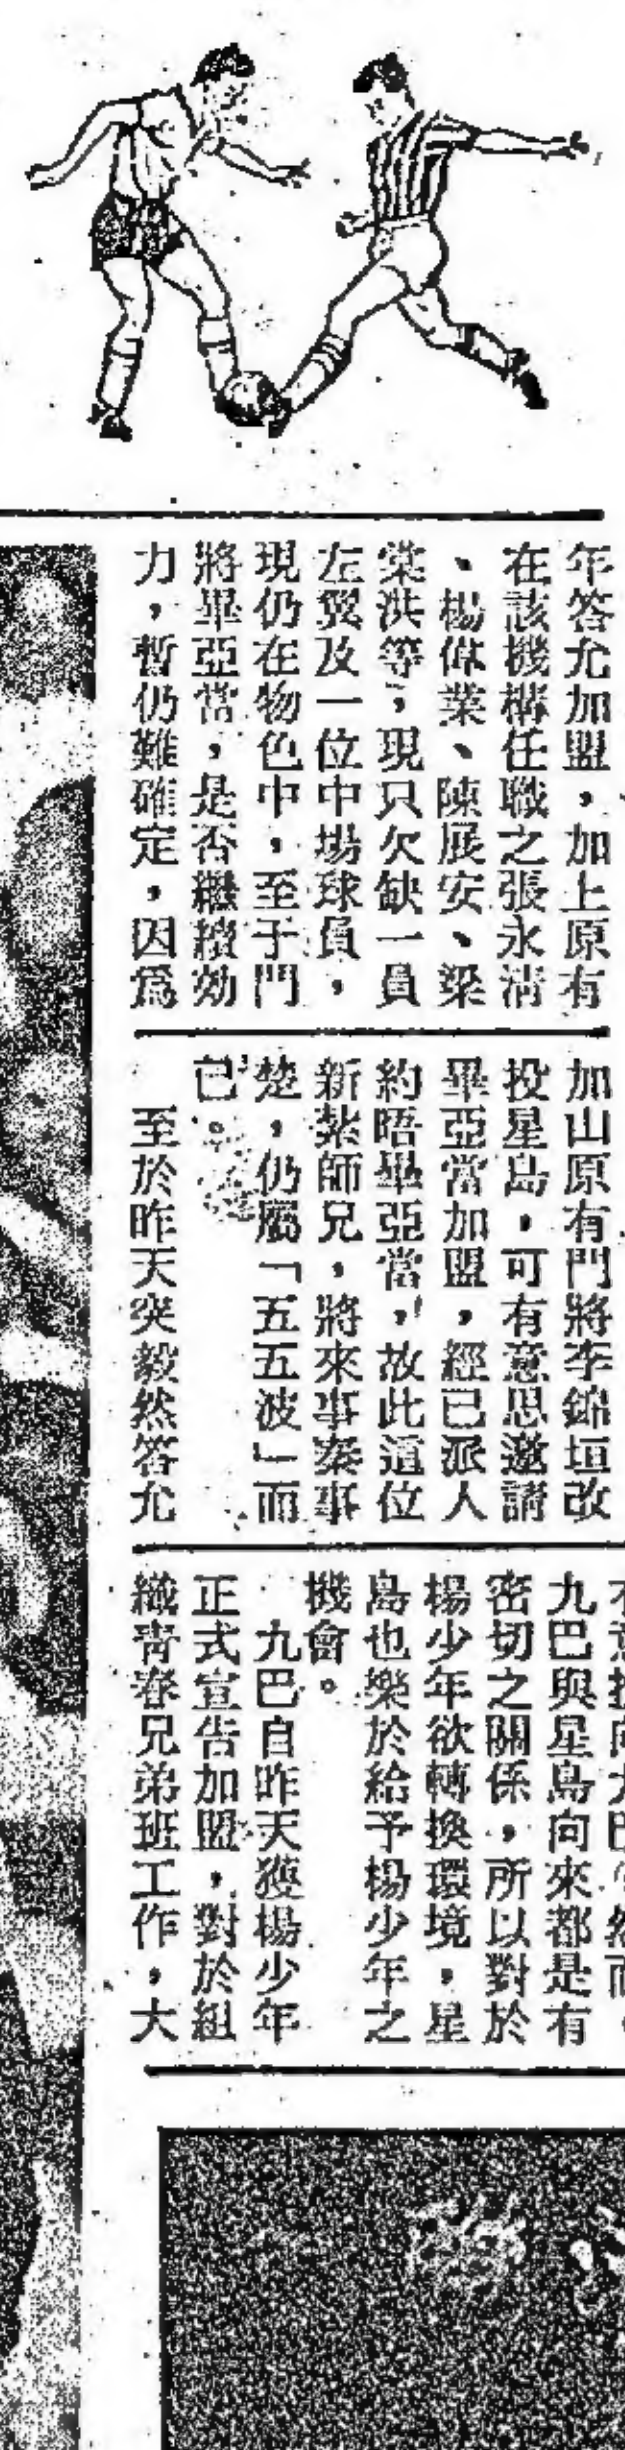 年答允加盟，加上原有
在該機構任職之張永清
、楊偉業、陳展安、梁
棠洪等，現只欠缺一員
左翼及一位中場球員，
現仍在物色中，至于門
將畢亞當，是否繼續効
力，暫仍難確定，因爲
加山原有門將李錦垣改
投星島，可有意思邀請
畢亞當加盟，經已派人
約晤畢亞當，故此這位
新紮師兄，將來事秦事
楚，仍屬「五五波」而
已。
至於昨天突毅然答允
九巴與星島向來都是有
密切之關係，所以對於
楊少年欲轉換環境，星
島也樂於給予楊少年之
機會。
九巴自昨天獲楊少年
正式宣告加盟，對於組
織青春兄弟班工作，大